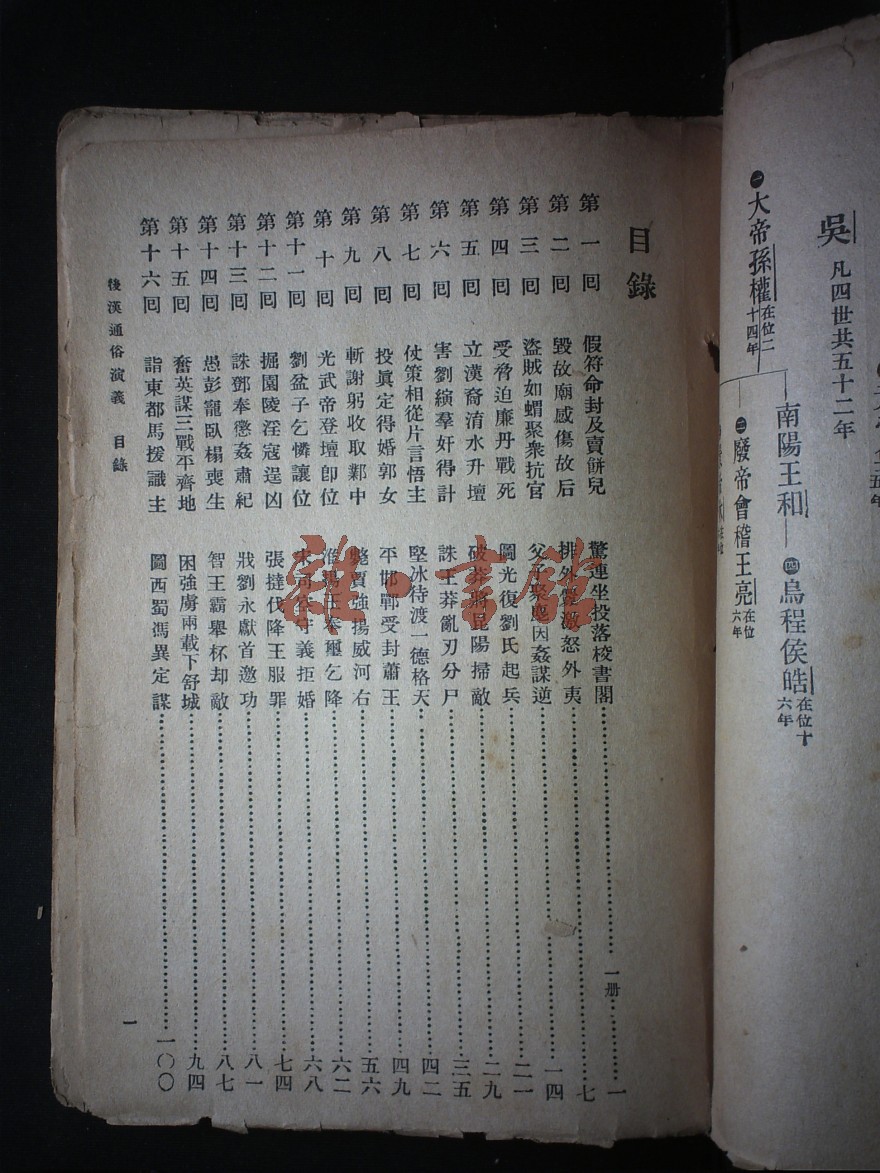 吳 凡四世共五十二年
㊀大帝孫權在位二十四年
南陽王和
㊃烏程侯皓在位十六年
㊁廢帝會稽王亮在位六年
目錄
第一回 假符命封及賣餅兒 驚連坐投落校書閣 一册 一
第二回 毀故廟感傷故后 排外釁激怒外夷 七
第三回 盜賊如蝟聚衆抗官 父子聚麀因姦謀逆 一四
第四回 受脅迫廉丹戰死 圖光復劉氏起兵 二一
第五回 立漢裔淯水升壇 破莽將昆陽掃敵 二九
第六回 害劉縯羣奸得計 誅王莽亂刃分尸 三五
第七回 仗策相從片言悟主 堅冰待渡一德格天 四二
第八回 投眞定得婚郭女 平邯鄲受封蕭王 四九
第九回 斬謝躬收取鄴中 斃賈強揚威河右 五六
第十回 光武帝登壇卽位 淮陽王奉璽乞降 六二
第十一回 劉盆子乞憐讓位 宋司空守義拒婚 六八
第十二回 掘園陵淫寇逞凶 張撻伐降王服罪 七四
第十三回 誅鄧奉懲姦肅紀 戕劉永獻首邀功 八一
第十四回 愚彭寵臥榻喪生 智王霸舉杯却敵 八七
第十五回 奮英謀三戰平齊地 困強虜兩載下舒城 九四
第十六回 詣東都馬援識主 圖西蜀馮異定謀 一〇〇
後漢通俗演義 目錄
一